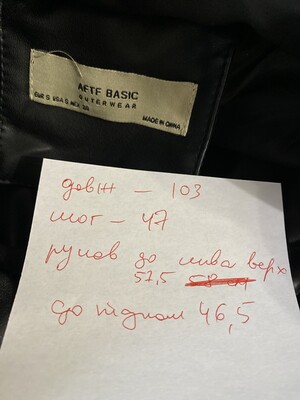 AFTF BASIC
OUTERWEAR
EUR S USA S MEX
MADE IN CHINA
довж — 103
пог — 47
рукав до шва верх
57,5
до підпах 46,5